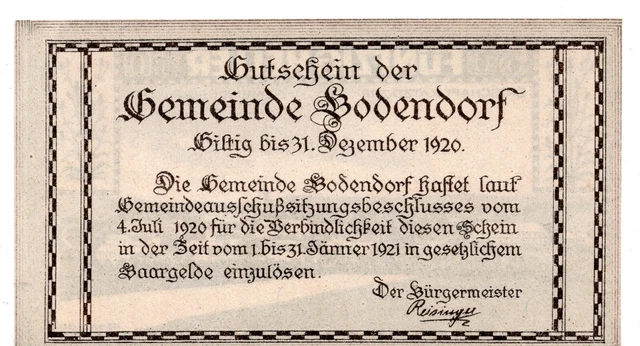 Gutschein der
Gemeinde Bodendorf
Giltig bis 31. Dezember 1920.
Die Gemeinde Bodendorf haftet laut
Gemeindeausschußsitzungsbeschlusses vom
4. Juli 1920 für die Verbindlichkeit diesen Schein
in der Zeit vom 1. bis 31. Jänner 1921 in gesetzlichem
Baargelde einzulösen.
Der Bürgermeister
Reisinger